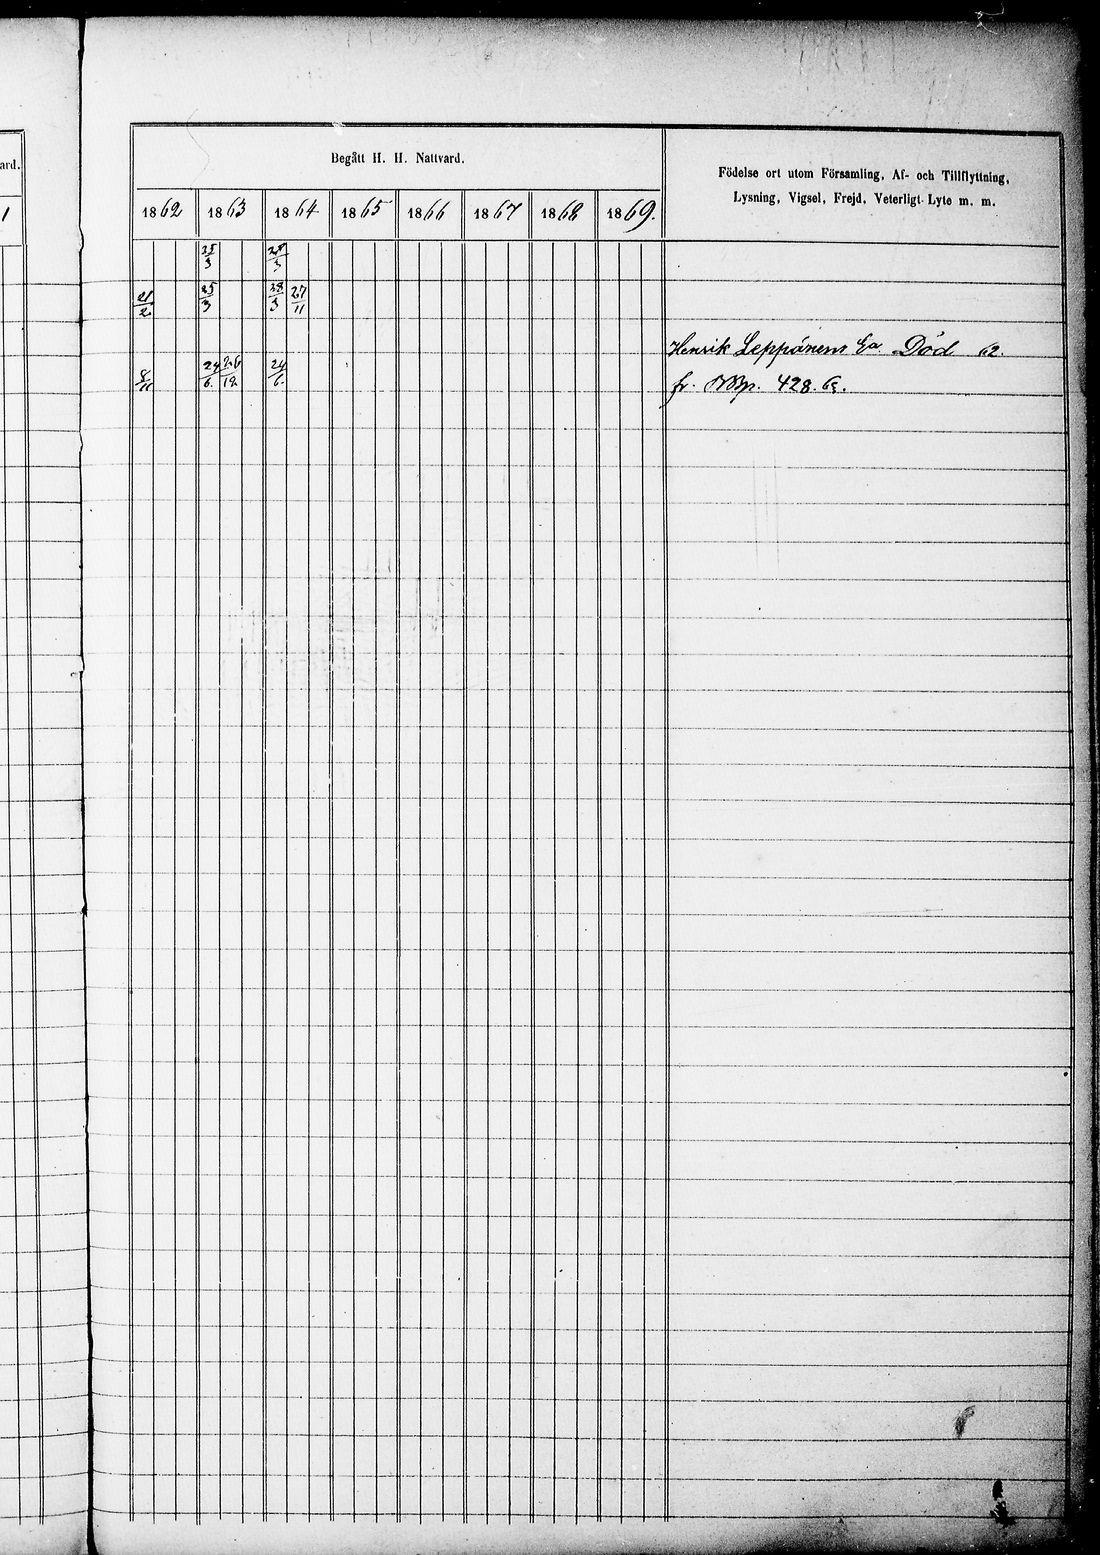 ard.
Begått H. H. Nattvard.
Födelse ort utom Församling, Af- och Tillflyttning,
Lysning, Vigsel, Frejd, Veterligt Lyte m. m.
1
1862 1863 1864 1865 1866 1867 1868 1869.
25/3 28/3
21/2 25/3 28/3 27/11
Henrik Leppänens Ea. Död 62.
8/11 24/6. 26/12. 24/6.
fr. 428.